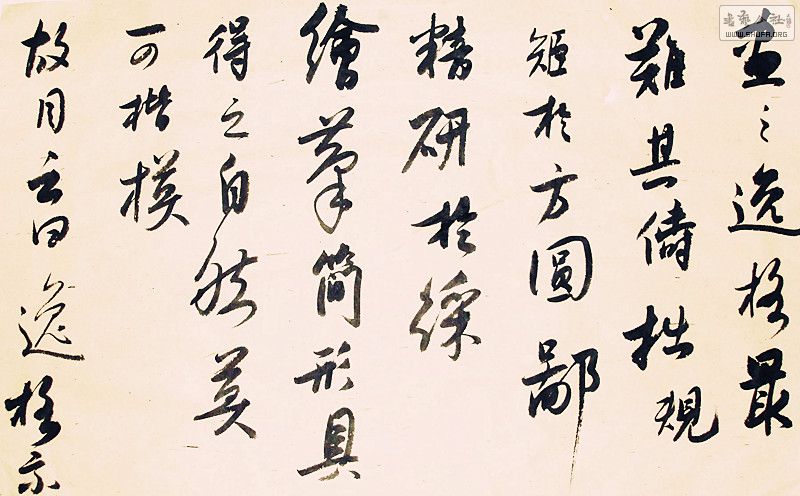 畫之逸格最
難其儔拙規
矩於方圓鄙
精研於綵
繪筆簡形具
得之自然莫
可楷模
故目之曰逸格尔
WWW.SHUFA.ORG